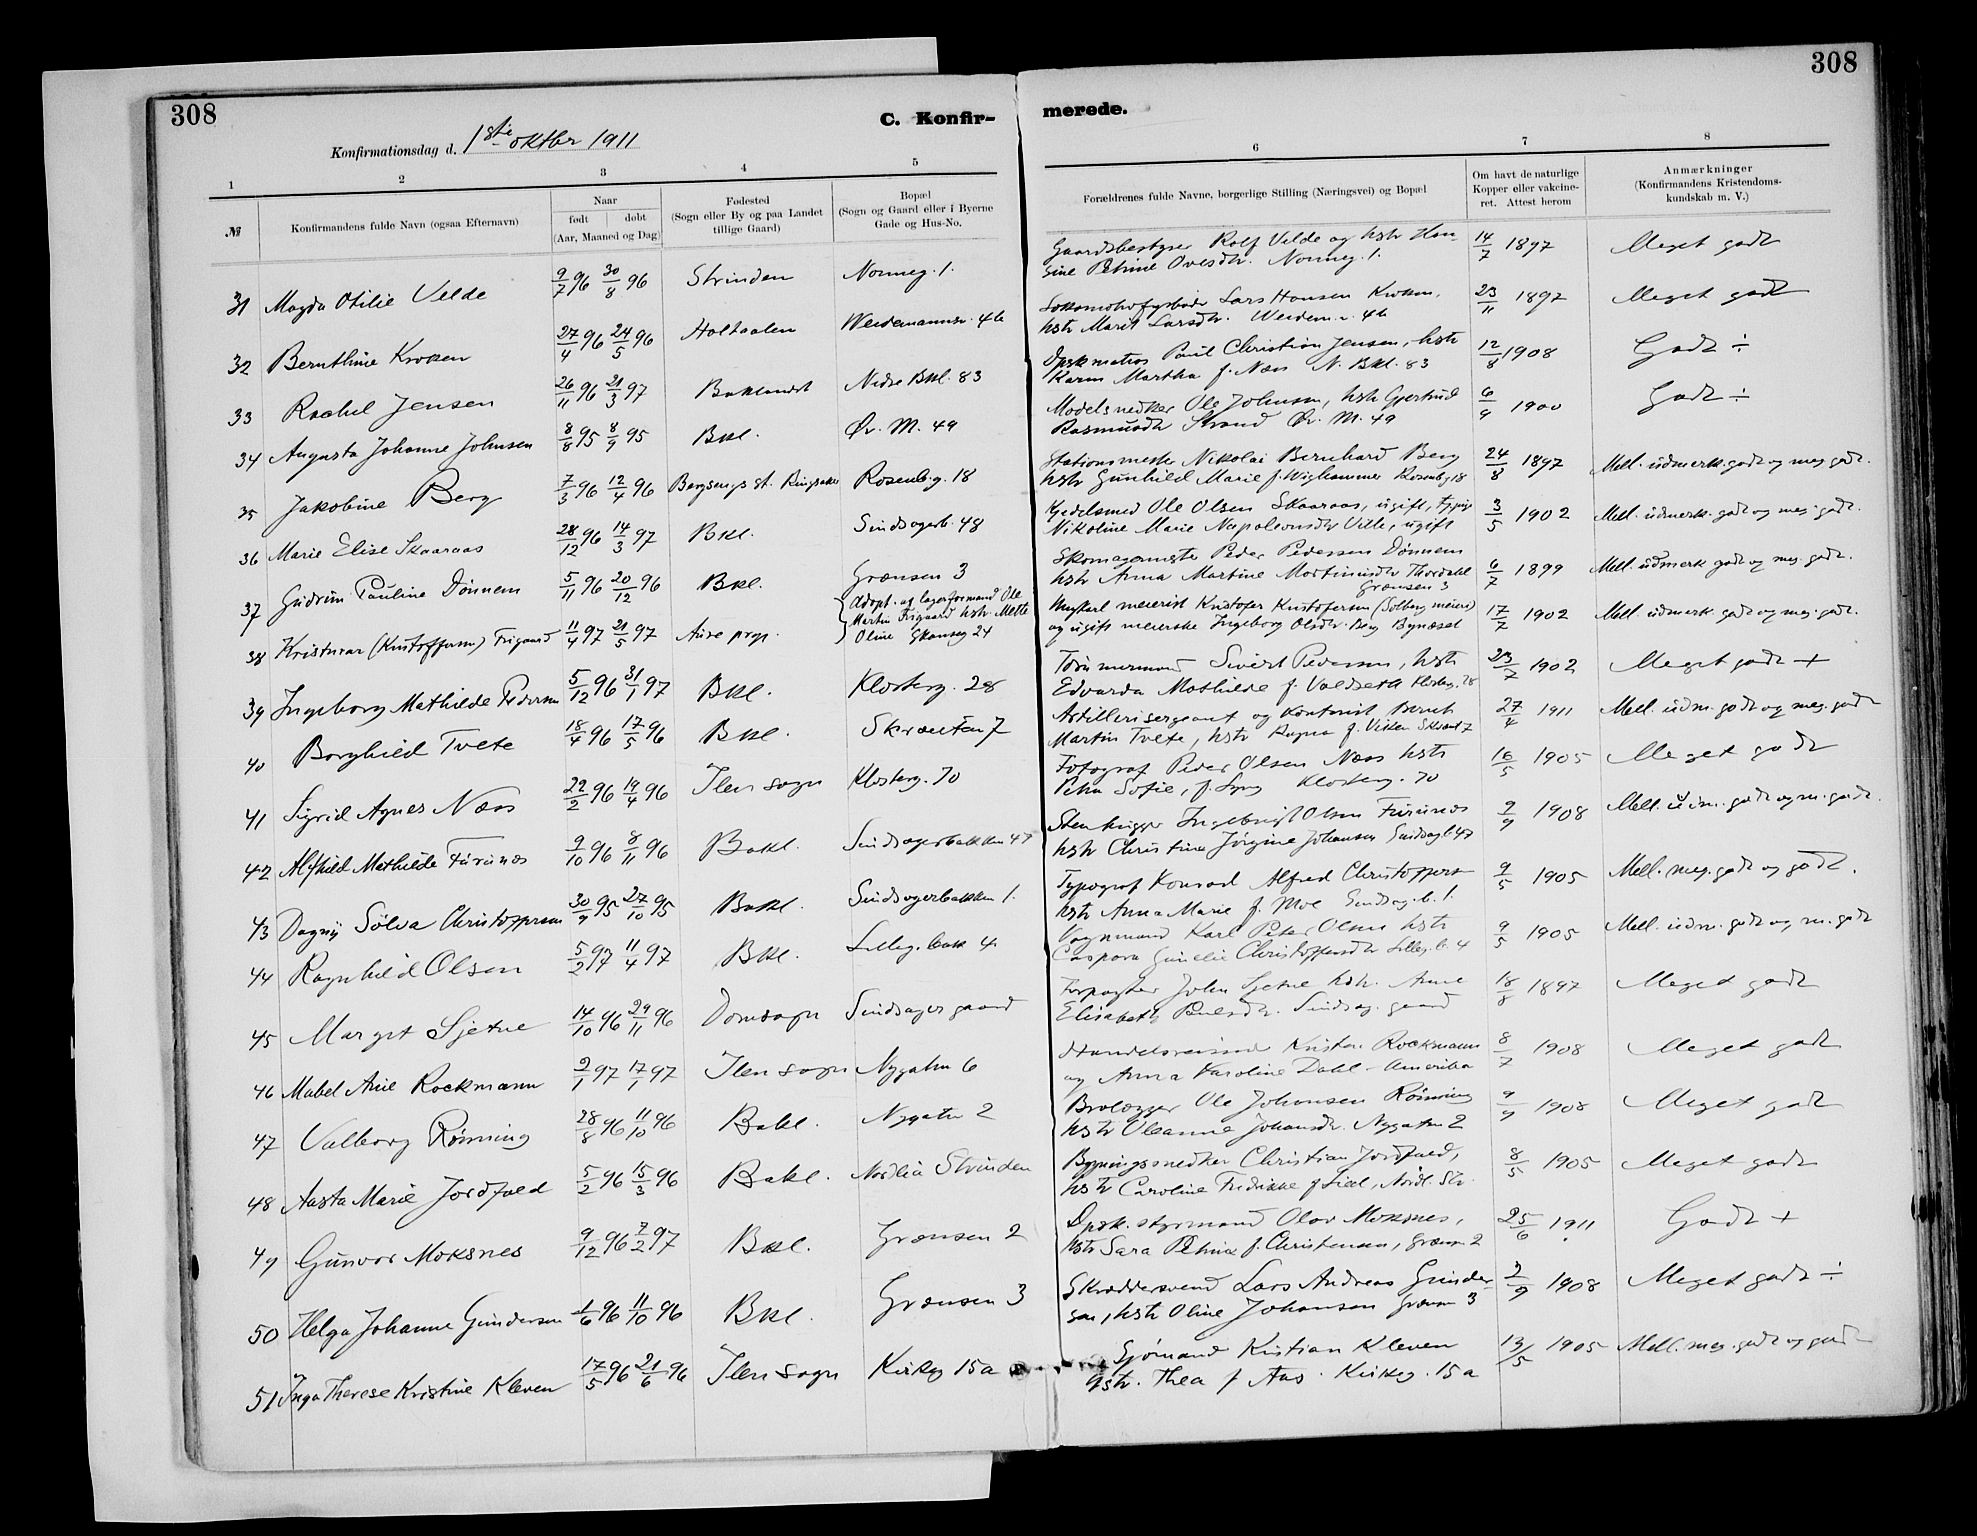 308
308
C. Konfir-
merede.
Konfirmationsdag d. 1ste oktbr 1911
1 2 3 4 5 6 7 8
№
Konfirmandens fulde Navn (ogsaa Efternavn)
Naar
født døbt
(Aar, Maaned og Dag)
Fødested
(Sogn eller By og paa Landet
tillige Gaard)
Bopæl
(Sogn og Gaard eller i Byerne
Gade og Hus-No.
Forældrenes fulde Navne, borgerlige Stilling (Næringsvei) og Bopæl
Om havt de naturlige
Kopper eller vakcine-
ret. Attest herom
Anmærkninger
(Konfirmandens Kristendoms-
kundskab m. V.)
31 Magda Otilie Velde 9/7 96 30/8 96 Strinden Norweg. 1. Gaardsbestyrer Rolf Velde og hstr Han- 14/7 1897 Meget godt
sine Petrine Ovesdtr. Norweg. 1.
32 Bernthine Kroken 27/4 96 24/5 96 Holtaalen Weidemannsv. 46 Lokomotivfyrbøder Lars Hansen Kroken, 23/11 1897 Meget godt
hstr Marit Larsdtr. Weidem.v. 46
33 Rachel Jensen 26/11 96 21/3 97 Baklandet Nedre Bkl. 83 Dpsk.matros Paul Christian Jensen, hstr 12/8 1908 Godt ÷
Karen Martha f. Næss N. Bkl. 83
34 Augusta Johanne Johnsen 8/8 95 8/9 95 Bkl. Øv. M. 49 Modelsnedker Ole Johnsen, hstr Gjertrud 6/9 1900 Godt ÷
Rasmusdtr Strand Øv. M. 49
35 Jakobine Berg 7/3 96 12/4 96 Bergsengs st. Ringsaker Rosenbg. 18 Stationsmester Nikolai Bernhard Berg 24/8 1897 Mell. udmerk. godt og meg. godt.
hstr Gunhild Marie f. Wighammer Rosenbg 18
36 Marie Elise Skaaraas 28/12 96 14/3 97 Bkl. Sindsagerb. 48 Kjedelsmed Ole Olsen Skaaraas, ugift, 3/5 1902 Mell. udmerk. godt og meg. godt.
Nikoline Marie Napoleonsdtr Ville, ugift
37 Gudrun Pauline Dønnem 5/11 96 20/12 96 Bkl. Grænsen 3 Skomagermester Peder Pedersen Dønnem 6/7 1899 Mell. udmerk godt og meg. godt.
hstr Anna Martine Mortinusdtr Thordahl
Grænsen 3
38 Kristmar (Kristoffersen) Frigaard 11/4 97 21/5 97 Aure prgj. Adopt. af lagerformand Ole
Martin Frigaard hstr. Mette
Oline Skansg 24
meierist Kristofer Kristofersen (Solberg meieri) 17/7 1902 Mell. udmerk. godt og meg. godt.
og ugift meierske Ingeborg Olsdtr. Berg Bynæset
39 Ingeborg Mathilde Pedersen 5/12 96 31/1 97 Bkl. Klosterg. 28 Tømmermand Sivert Pedersen, hstr 23/7 1902 Meget godt +
Edvarda Mathilde f. Valdseth Klosterg. 28
40 Borghild Tvete 18/4 96 17/5 96 Bkl. Skrænten 7 Artillerisergeant og kontorist Bernt 27/4 1911 Mell. udm. godt og meg. godt
Martin Tvete, hstr Ragna f. Vikten Skrænt 7
41 Sigrid Agnes Næss 29/2 96 19/4 96 Ilens sogn Klosterg. 70 Fotograf Peder Olsen Næss hstr 16/5 1905 Meget godt
Petra Sofie, f. Lyng Klosterg. 70
42 Alfhild Mathilde Furunes 9/10 96 8/11 96 Bakl. Sindsagerbakken 47 Stenhugger Ingebrigt Olsen Furunes 2/9 1908 Mell. udm. godt og m. godt.
hstr Christine Jørgine Johansen Sindsagb 47
43 Dagny Sølva Christoffersen 30/9 95 27/10 95 Bakl. Sindsagerbakken 1. Typograf Konrad Alfred Christoffersen 9/5 1905 Mell. meg. godt og godt.
hstr Anna Marie f. Moe Sindsag. b. 1.
44 Ragnhild Olsen 5/2 97 11/4 97 Bkl. Lilleg. bak 4 Vognmand Karl Peter Olsen hstr 9/5 1905 Mell. udm. godt og m. godt
Caspara Gunelie Christoffersdtr Lilleg. b. 4
45 Margit Sjetne 14/10 96 29/11 96 Domsogn Sindsagergaard Forpagter John Sjetne hstr. Anne 18/8 1897 Meget godt
Elisabeth Paulsdtr. Sindsag. gaard
46 Mabel Arie Rockmann 2/1 97 17/1 97 Ilens sogn Nygatn 6 Handelsreisend Kristen Rockmann 8/7 1908 Meget godt
og Anna Karoline Dahl - Amerika
47 Valborg Rønning 28/8 96 11/10 96 Bakl. Nygatn 2 Brolægger Ole Johansen Rønning 9/9 1908 Meget godt
hstr Oleanne Johansdtr. Nygatn 2
48 Aasta Marie Jordfald 5/2 96 15/3 96 Bakl. Nordlia Strinden Bygningssnedker Christian Jordfald, 8/5 1905 Meget godt
hstr Caroline Fredrikke f Lial, Nordl. Str.
49 Gunvor Moksnes 9/12 96 7/2 97 Bkl. Grænsen 2 Dpsk. styrmand Olav Moksnes, 25/6 1911 Godt +
hstr Sara Petrine f. Christensen, Grænsn 2
50 Helga Johanne Gundersen 1/6 96 11/10 96 Bkl. Grænsen 3 Skræddersvend Lars Andreas Gunder- 2/9 1908 Meget godt ÷
sen, hstr Oline Johansen Grænsn 3
51 Inga Therese Kristine Kleven 17/5 96 21/6 96 Ilens sogn Kirkeg 15a Sjømand Kristian Kleven 13/5 1905 Mell. meg. godt og godt
gstr. Thea f Aas. Kirkeg. 15a